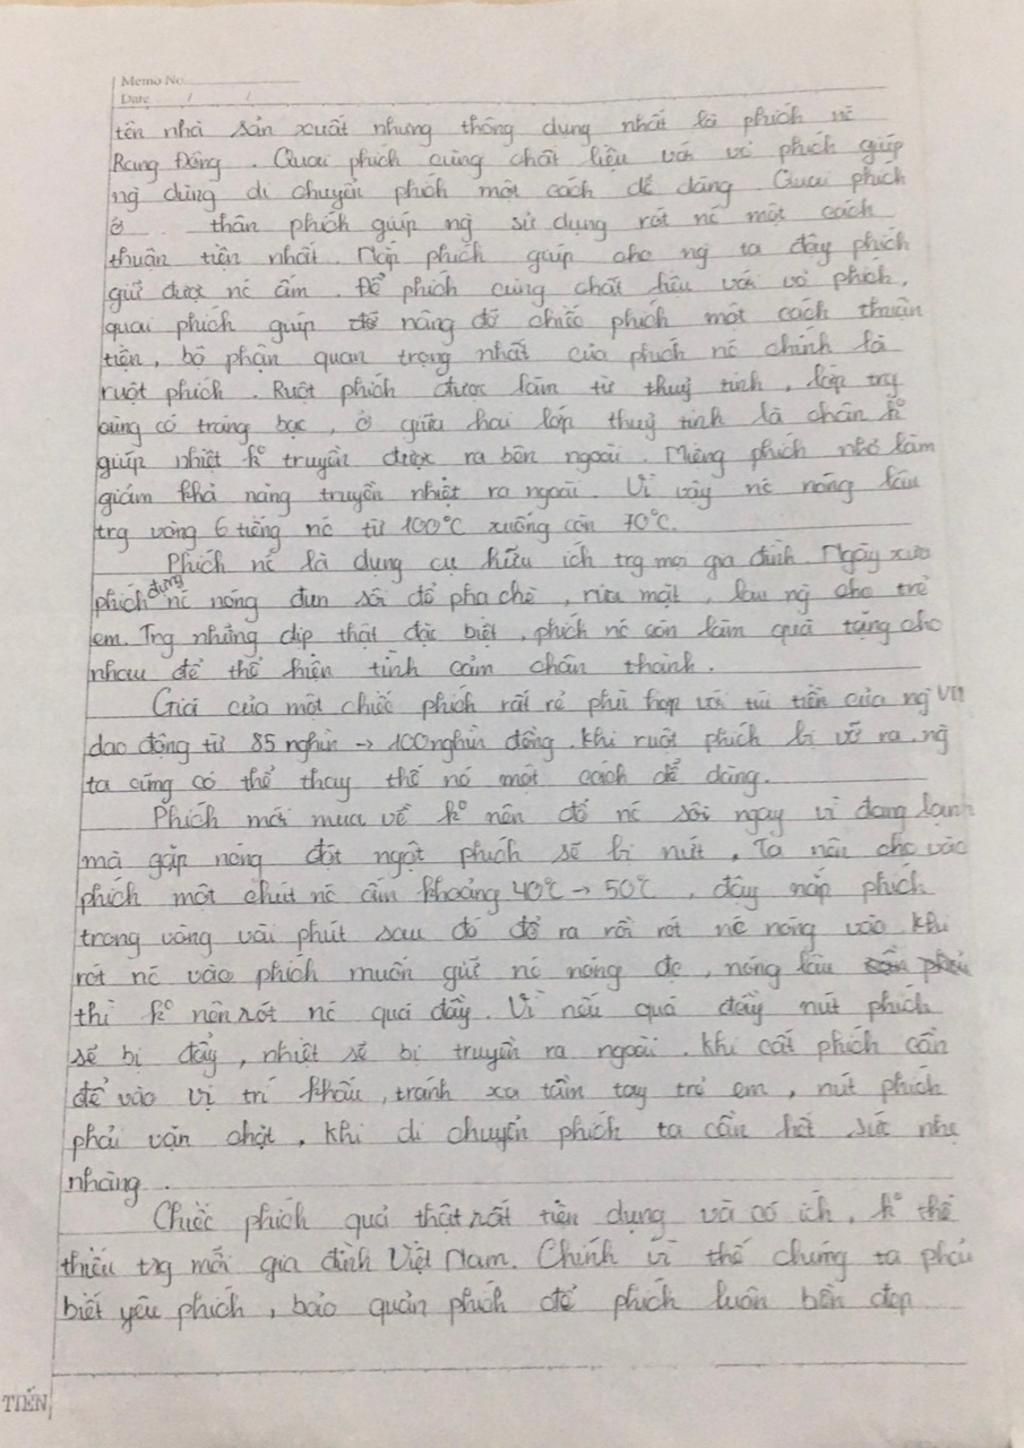 Memo No.
Date / /
tên nhà sản xuất nhưng thông dụng nhất là phích nc
Rạng Đông. Quai phích cùng chất liệu với vỏ phích giúp
ng dùng di chuyển phích một cách dễ dàng. Quai phích
ở thân phích giúp ng sử dụng rót nc một cách
thuận tiện nhất. Nắp phích giúp cho ng ta đậy phích
giữ được nc ấm. Đế phích cùng chất liệu với vỏ phích,
quai phích giúp nâng đỡ chiếc phích một cách thuận
tiện, bộ phận quan trọng nhất của phích nc chính là
ruột phích. Ruột phích được làm từ thuỷ tinh, lớp trg
cùng có tráng bạc, ở giữa hai lớp thuỷ tinh là chân k°
giúp nhiệt k° truyền được ra bên ngoài. Miệng phích nhỏ làm
giảm khả năng truyền nhiệt ra ngoài. Vì vậy nc nóng lâu
trg vòng 6 tiếng nc từ 100°C xuống còn 70°C.
Phích nc là dụng cụ hữu ích trg mọi gia đình. Ngày xưa
phích đựng nc nóng đun sôi để pha chè, rửa mặt, lau ng cho trẻ
em. Trg những dịp thật đặc biệt, phích nc còn làm quà tặng cho
nhau để thể hiện tình cảm chân thành.
Giá của một chiếc phích rất rẻ phù hợp với túi tiền của ng VN
dao động từ 85 nghìn → 100 nghìn đồng. Khi ruột phích bị vỡ ra, ng
ta cũng có thể thay thế nó một cách dễ dàng.
Phích mới mua về k° nên đổ nc sôi ngay vì đang lạnh
mà gặp nóng đột ngột phích sẽ bị nứt. Ta nên cho vào
phích một chút nc ấm khoảng 40°C → 50°C, đậy nắp phích
trong vòng vài phút sau đó đổ ra rồi rót nc nóng vào. Khi
rót nc vào phích muốn giữ nc nóng đc, nóng lâu
thì k° nên rót nc quá đầy. Vì nếu quá đầy nút phích
sẽ bị đẩy, nhiệt sẽ bị truyền ra ngoài. Khi cất phích cần
để vào vị trí khấu, tránh xa tầm tay trẻ em, nút phích
phải vặn chặt, khi di chuyển phích ta cần hết sức nhẹ
nhàng.
Chiếc phích quả thật rất tiện dụng và có ích, k° thể
thiếu trg mỗi gia đình Việt Nam. Chính vì thế chúng ta phải
biết yêu phích, bảo quản phích để phích luôn bền đẹp
TIẾN